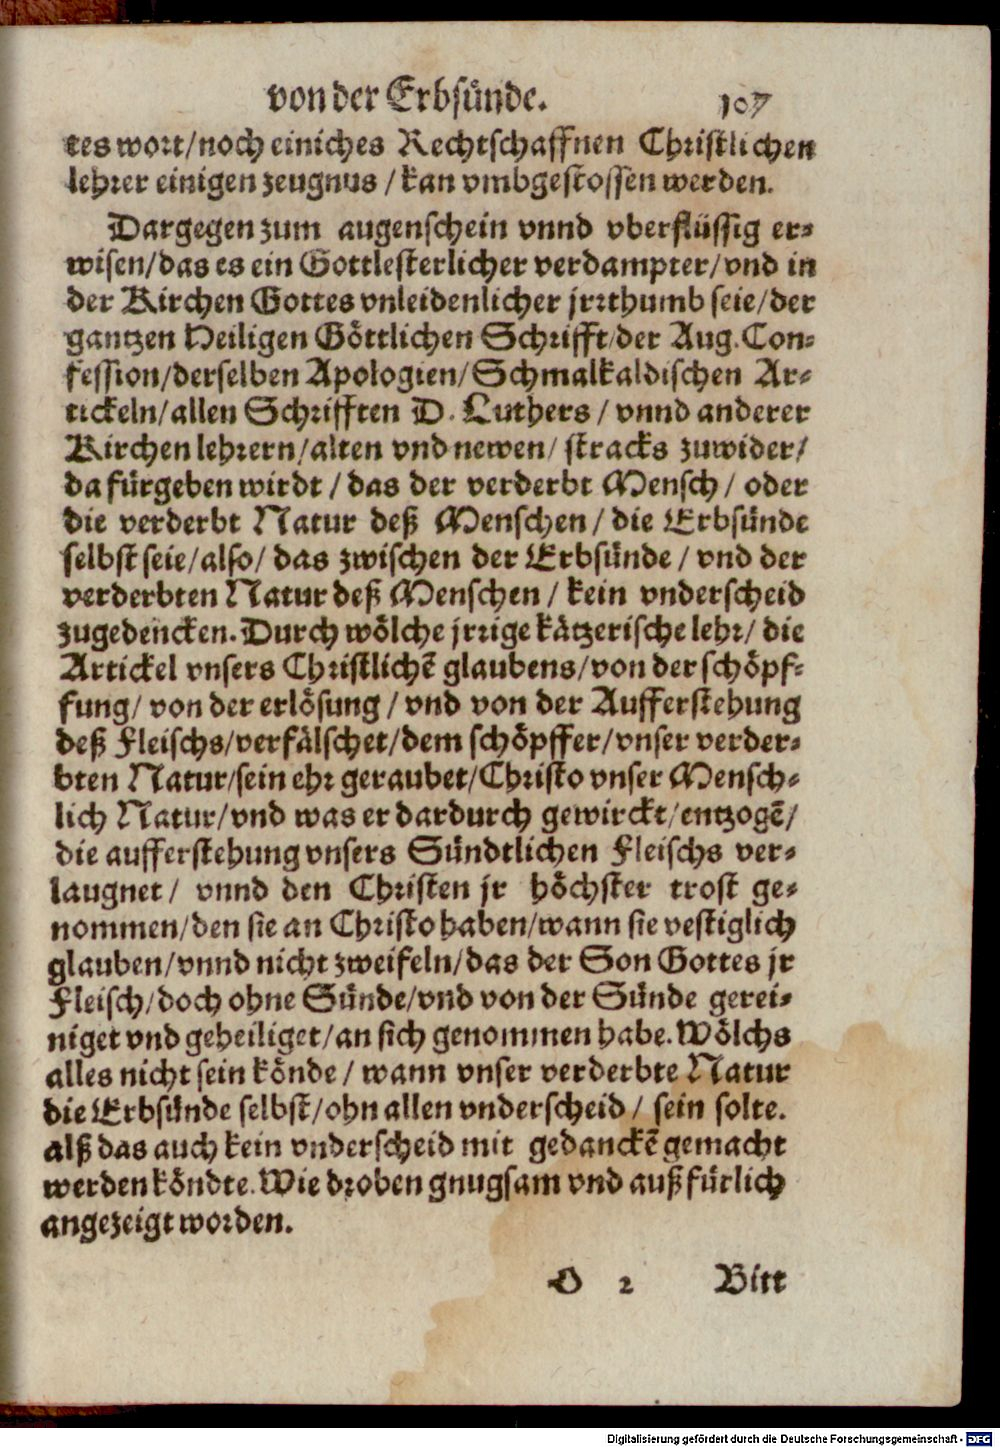 von der Erbsünde. 107
tes wort/noch einiches Rechtschaffnen Christlichen
lehrer einigen zeugnus / kan vmbgestossen werden.
Dargegen zum augenschein vnnd vberflüssig er-
wisen/das es ein Gottlesterlicher verdampter/vnd in
der Kirchen Gottes vnleidenlicher jrrthumb seie/der
gantzen Heiligen Göttlichen Schrifft/der Aug. Con-
fession/derselben Apologien/Schmalkaldischen Ar-
tickeln/allen Schrifften D. Luthers / vnnd anderer
Kirchen lehrern/alten vnd newen/ stracks zuwider/
da fürgeben wirdt / das der verderbt Mensch / oder
die verderbt Natur deß Menschen / die Erbsünde
selbst seie/also/ das zwischen der Erbsünde / vnd der
verderbten Natur deß Menschen / kein vnderscheid
zugedencken. Durch wölche jrrige kätzerische lehr/ die
Artickel vnsers Christlichē glaubens/von der schöpf-
fung/ von der erlösung / vnd von der Aufferstehung
deß Fleischs/verfälschet/dem schöpffer/vnser verder-
bten Natur/sein ehr geraubet/Christo vnser Mensch-
lich Natur/vnd was er dardurch gewirckt/entzogē/
die aufferstehung vnsers Sündtlichen Fleischs ver-
laugnet / vnnd den Christen jr höchster trost ge-
nommen/den sie an Christo haben/wann sie vestiglich
glauben/vnnd nicht zweifeln/das der Son Gottes jr
Fleisch/doch ohne Sünde/vnd von der Sünde gerei-
niget vnd geheiliget/an sich genommen habe. Wölchs
alles nicht sein könde / wann vnser verderbte Natur
die Erbsünde selbst/ohn allen vnderscheid / sein solte.
alß das auch kein vnderscheid mit gedanckē gemacht
werden köndte. Wie droben gnugsam vnd außfürlich
angezeigt worden.
O 2 Bitt
Digitalisierung gefördert durch die Deutsche Forschungsgemeinschaft - DFG